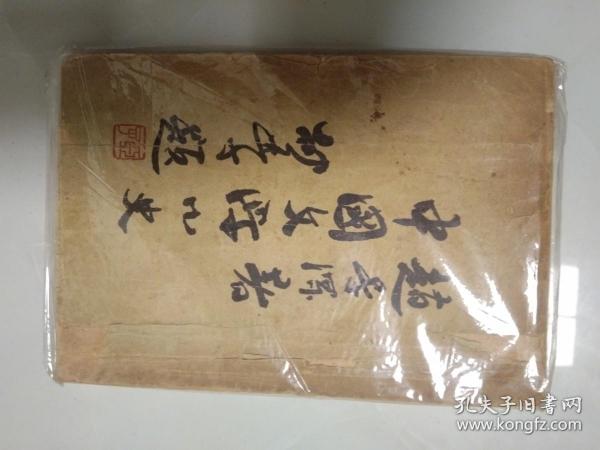 趙景深著
中國文學小史
題
孔夫子旧書网
www.kongfz.com